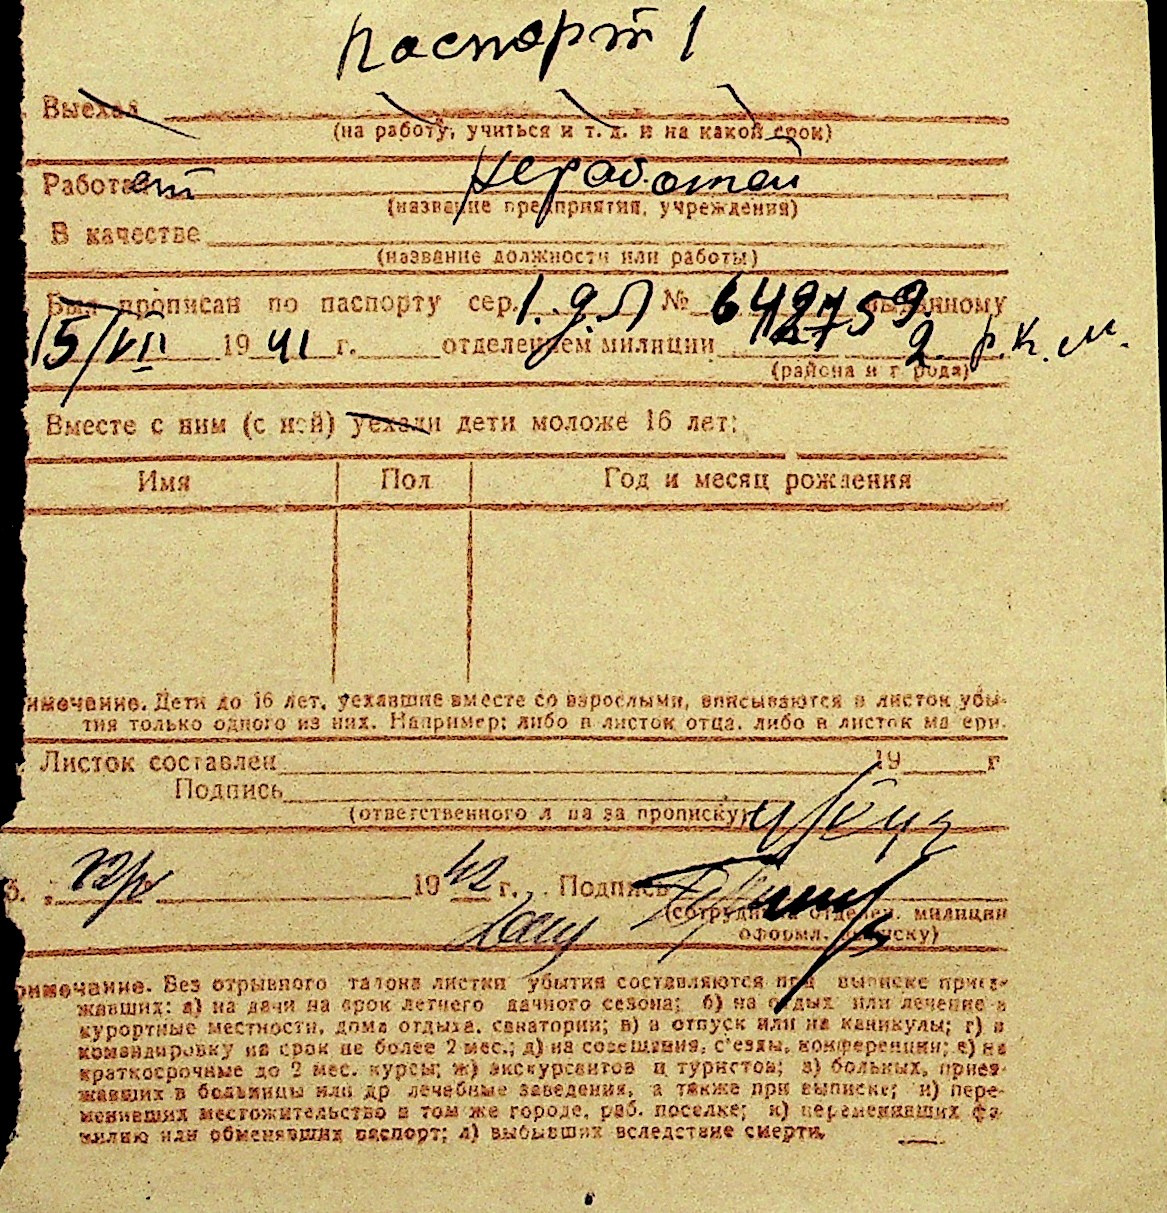 Паспорт 1
Выехал
(на работу, учиться и т. д. и на какой срок)
Работает неработой
(название предприятия, учреждения)
В качестве
(название должности или работы)
Был прописан по паспорту сер. № выданному
15/VII 1941 г. отделением милиции 2 р.к.м.
(района и города)
Вместе с ним (с ней) уехали дети моложе 16 лет:
Имя Пол Год и месяц рождения
имечание. Дети до 16 лет, уехавшие вместе со взрослыми, вписываются в листок убы-
тия только одного из них. Например: либо в листок отца, либо в листок матери.
Листок составлен 19 г
Подпись
(ответственного лица за прописку)
б. 1942 г. Подпись
(сотрудника отделен. милиции
оформл. выписку)
римечание. Без отрывного талона листки убытия составляются при выписке приез-
жавших: а) на дачи на срок летнего дачного сезона; б) на отдых или лечение в
курортные местности, дома отдыха, санатории; в) в отпуск или на каникулы; г) в
командировку на срок не более 2 мес.; д) на совещания, с'езды, конференции; е) на
краткосрочные до 2 мес. курсы; ж) экскурсантов и туристов; з) больных, приез-
жавших в больницы или др лечебные заведения, а также при выписке; и) пере-
менивших местожительство в том же городе, раб. поселке; к) переменивших фа-
милию или обменявших паспорт; л) выбывших вследствие смерти.